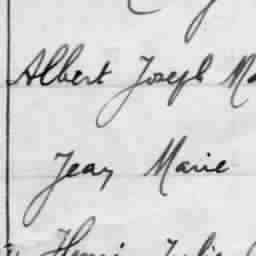 Albert Joseph Ma
Jean Marie
Henri Julie